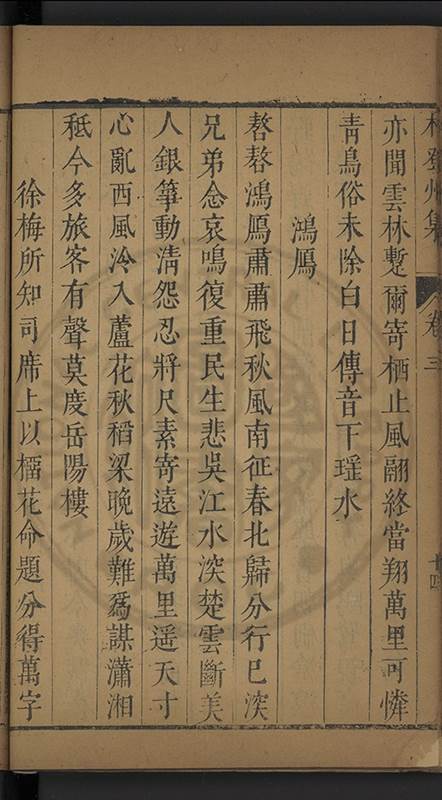 州集
卷三
亦聞雲林蹔爾寄栖止風翮終當翔萬里可憐
青鳥俗未除白日傳音下瑤水
鴻鴈
嗸嗸鴻鴈肅肅飛秋風南征春北歸分行巳深
兄弟念哀鳴復重民生悲吳江水深楚雲斷美
人銀箏動清怨忍將尺素寄遠遊萬里遥天寸
心亂西風冷入蘆花秋稻粱晚歲難爲謀瀟湘
秪今多旅客有聲莫度岳陽樓
徐梅所知司席上以榴花命題分得萬字